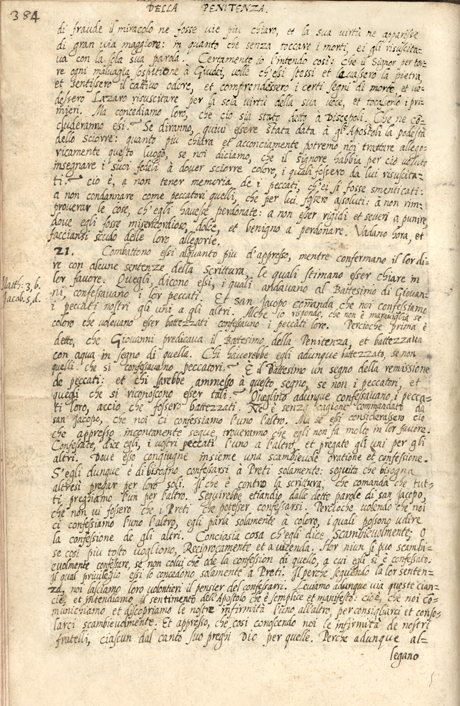 384
DELLA PENITENZA.
di fraude il miracolo ne fosse vie piu chiaro, et la sua virtù ne apparisse
di gran via maggiore: in quanto che senza toccare i morti, ei gli risuscita-
va con la sola sua parola. Certamente io l'intendo così: che il Signor per torre
ogni malvagia a Giudei, volle ch'essi stessi et la pietra,
et sentissero il cattivo odore, et comprendessero i certi segni di morte, et ve-
dessero Lazaro risuscitare per la sola virtù della sua voce, et toccarlo i pri-
mieri. Ma concediamo loro, che ciò sia stato detto à Discepoli. Che ne con-
cluderanno essi. Se diranno, quivi essere stata data à gli Apostoli la podestà
dello sciorre: quanto piu chiara et acconciamente potremo noi trattare allego-
ricamente questo luogo, se noi diciamo, che il Signore habbia per ciò voluto
insegnare i suoi fedeli à dover sciorre coloro, i quali fossero da lui risuscita-
ti. cio è, a non tener memoria de i peccati, ch'ei si fosse smenticati:
a non condannare come peccatori quelli, che per lui fossero assoluti: à non rim-
proverar le cose, ch'egli havesse perdonate: a non esser rigidi et severi à punire,
dove egli fosse misericordioso, dolce, et benigno a perdonare. Vadano hora, et
faccianti scudo delle loro allegorie.
21. Combattono essi alquanto piu d'appresso, mentre confermano il lor di-
re con alcune sentenze della Scrittura, le quali stimano esser chiare in
Matt: 3, 6.
lor favore. Quegli, dicono essi, i quali andavano al Battesimo di Giovan-
Jacob. 5, d.
ni, confessavano i lor peccati. Et San Jacopo comanda che noi confessiamo
i peccati nostri gli uni a gli altri. Alche io rispondo, che non è maraviglia se
coloro che volevano esser battezzati confessavano i peccati loro. Percioche prima è
detto, che Giovanni predicava il Battesimo della Penitenza, et battezzava
con aqua in segno di quella. Chi haverebbe egli adunque battezzato, se non
quelli che si confessavano peccatori. È il Battesimo un segno della remissione
de peccati: et chi sarebbe ammesso à questo segno, se non i peccatori, et
quegli che si riconoscono esser tali. Questi adunque confessavano i pecca-
ti loro, accio che fossero battezzati. Ne è senza cagione comandato da
San Jacopo, che noi ci confessiamo l'uno l'altro. Ma se essi considerassero ciò
che appresso incontanente segue, troveranno che egli non fa molto in lor favore.
Confessate, dice egli, i vostri peccati l'uno a l'altro, et pregate gli uni per gli
altri. Dove esso congiugne insieme una scambievole oratione et confessione.
S'egli dunque è di bisogno confessarsi a Preti solamente: seguita che bisogna
altresì pregar per loro soli. Il che è contro la scrittura, che comanda che tut-
ti preghiamo l'un per l'altro. Seguirebbe etiandio dalle dette parole di san Jacopo,
che non vi fossero che i Preti che potesser confessarsi. Percioche volendo che noi
ci confessiamo l'uno l'altro, egli parla solamente à coloro, i quali possono udire
la confessione de gli altri. Conciosia cosa ch'egli dice Scambievolmente, o
se così piu tosto vogliono, Reciprocamente et a vicenda. Hor niun si puo scambi-
evolmente confessare, se non colui che ode la confession di quello, a cui egli si è confessato.
Il qual privilegio essi lo concedono solamente a Preti. Il perche seguendo la lor senten-
za, noi lasciamo loro volentieri il pensier del confessarsi. Leviamo adunque via queste cian-
cie, et intendiamo il sentimento dell'Apostolo che è semplice et manifesto: cioè, che noi co-
munichiamo et discopriamo le nostre infirmità l'uno all'altro, per consigliarci et conso-
larci scambievolmente. Et appresso, che così conoscendo noi le infirmità de nostri
frattelli, ciascun dal canto suo preghi Dio per quelle. Perche adunque al-
legano